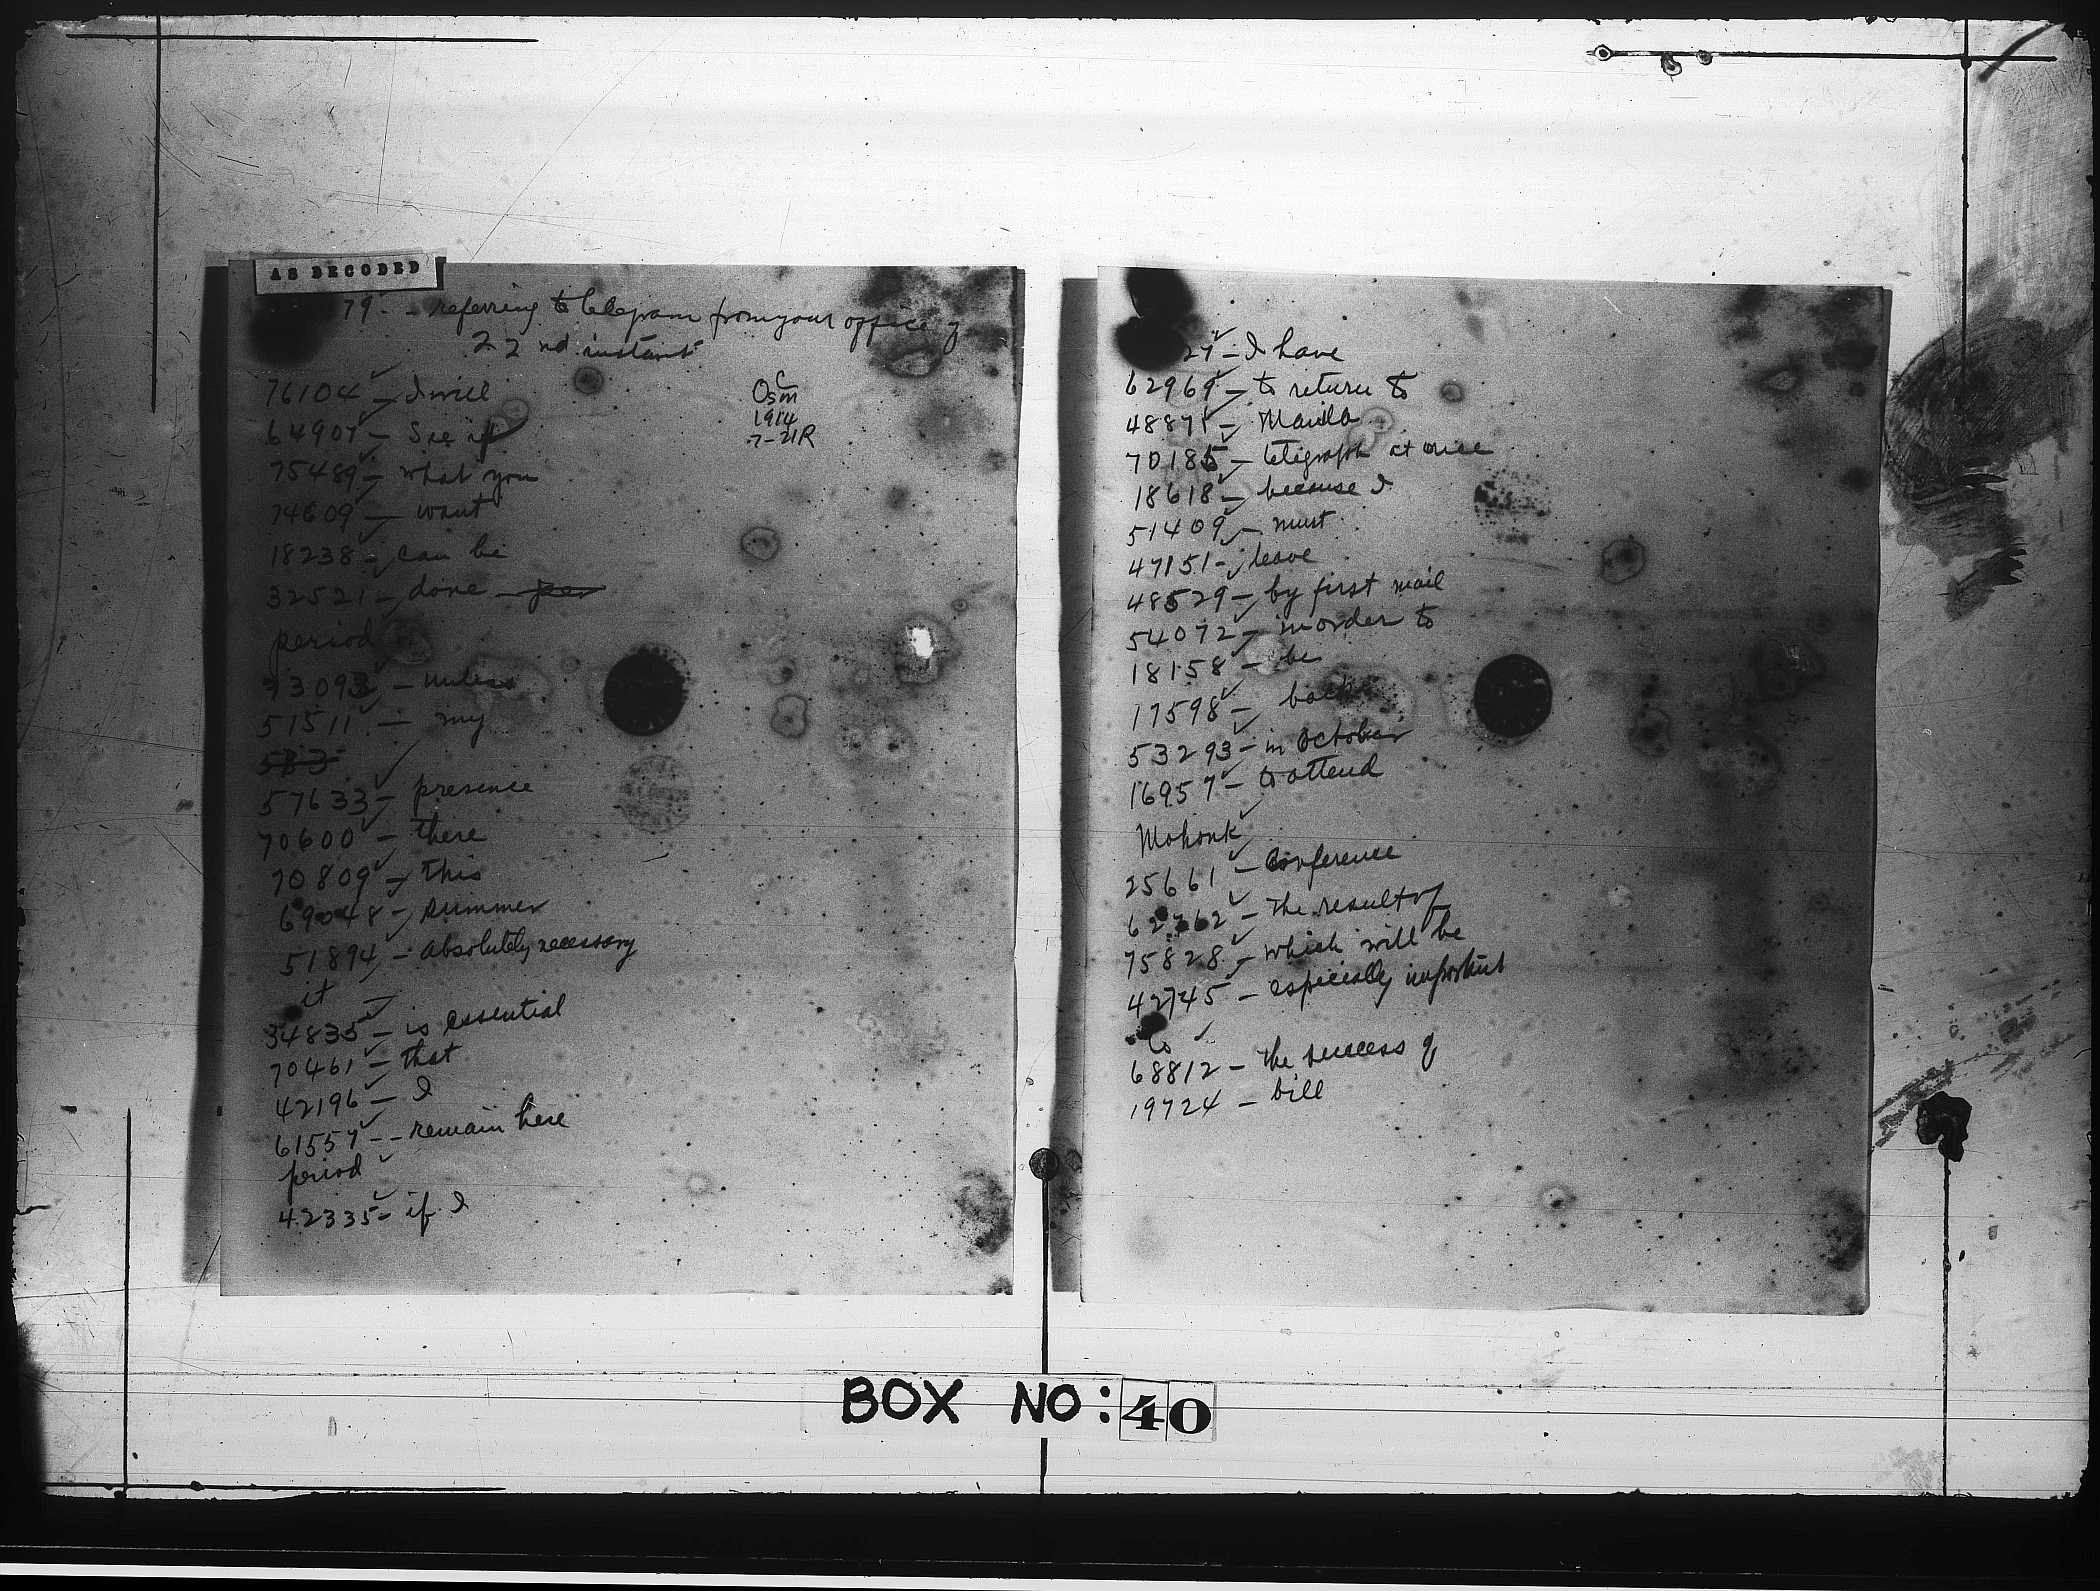 AS DECODED
79 - referring to telegram from your office of
22nd instant
76104 - I will
64907 - See if
75489 - what you
74609 - want
18238 - can be
32521 - done - per
period
73093 - unless
51511 - my
583
57633 - presence
70600 - there
70809 - this
69048 - summer
51894 - absolutely necessary
it -
34835 - is essential
70461 - that
42196 - I
61557 - - remain here
period
42335 - if I
C
Osm
1914
7-21R
27 - I have
62969 - to return to
48871 - Manila
70185 - telegraph at once
18618 - because I
51409 - must
47151 - leave
48529 - by first mail
54072 - in order to
18158 - be
17598 - back
53293 - in October
16957 - to attend
Mohonk
25661 - Conference
62362 - the result of
75828 - which will be
42745 - especially important
to
68812 - the success of
19724 - bill
BOX NO: 40